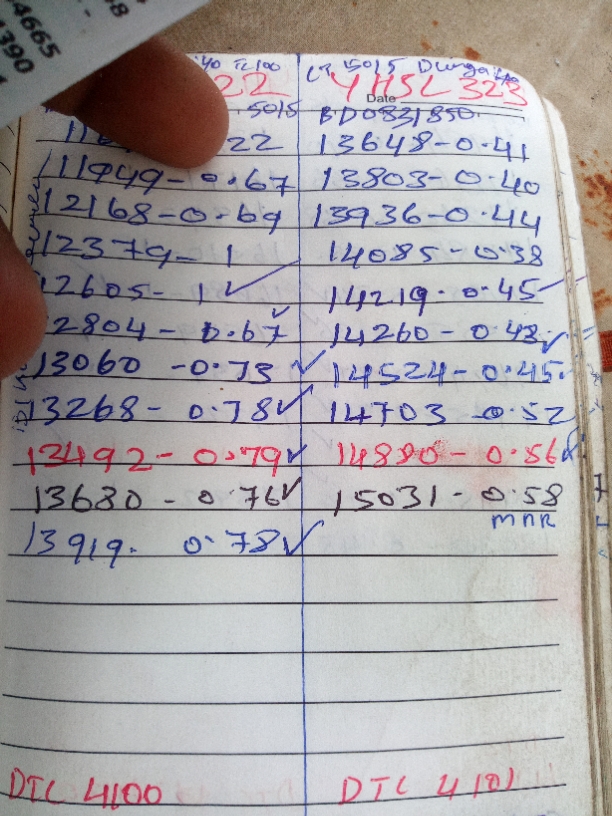 4665
1390
40 TC100
22
5015
22
11949-0.67
12168-0.69
12379-1
12605-1✓
2804-0.67✓
13060-0.73✓
13268-0.78✓
13492-0.79✓
13680-0.76✓
13919-0.78✓
DTC 4100
15015 Durga
YHSL 323
Date
BD0831850
13648-0.41
13803-0.40
13936-0.44
14085-0.38
14219-0.45
14260-0.48✓
14524-0.45
14703-0.52
14890-0.56
15031-0.58
MNR
DTC 4101